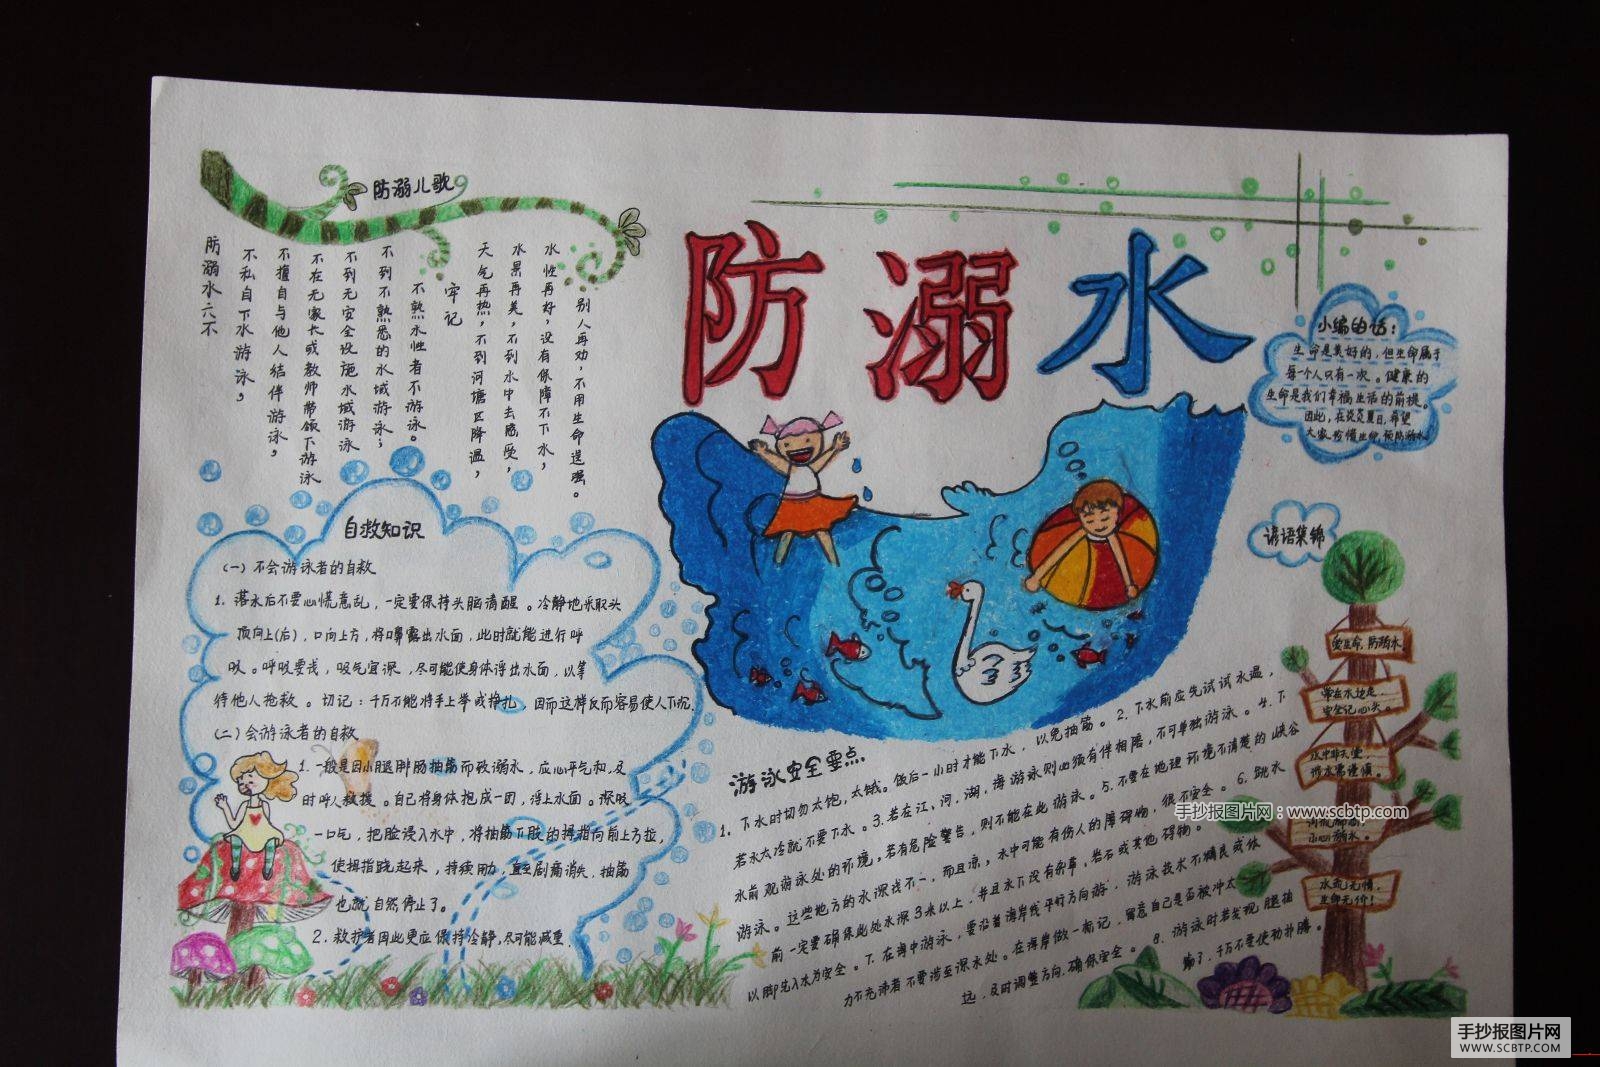 防溺儿歌
防溺水六不
不私自下水游泳，
不擅自与他人结伴游泳，
不在无家长或教师带领下游泳
不到无安全设施水域游泳
不到不熟悉的水域游泳；
不熟水性者不游泳。
牢记
天气再热，不到河塘区降温，
水果再美，不到水中去感受，
水性再好，没有保障不下水，
别人再劝，不用生命逞强。
防溺水
小编的话：
生命是美好的，但生命属于
每一个人只有一次。健康的
生命是我们幸福生活的前提。
因此，在炎炎夏日，希望
大家珍惜生命，预防溺水
自救知识
（一）不会游泳者的自救
1. 落水后不要心慌意乱，一定要保持头脑清醒。冷静地采取头
顶向上(后)，口向上方，将口鼻露出水面，此时就能进行呼
吸。呼吸要浅，吸气宜深，尽可能使身体浮出水面，以等
待他人抢救。切记：千万不能将手上举或挣扎，因而这样反而容易使人下沉.
（二）会游泳者的自救
1. 一般是因小腿腓肠抽筋而致溺水，应心平气和，及
时呼人救援。自己将身体抱成一团，浮上水面。深吸
一口气，把脸浸入水中，将抽筋下肢的拇指向前上方拉，
使拇指跷起来，持续用力，直至剧痛消失，抽筋
也就自然停止了。
2. 救护者因此更应保持冷静，尽可能减重.
谚语集锦
爱生命，防溺水
常在水边走，
安全记心头。
水中非天堂，
涉水需谨慎。
小心溺水。
水流无情，
生命无价！
游泳安全要点
1. 下水时切勿太饱，太饿。饭后一小时才能下水，以免抽筋。2. 下水前应先试试水温，
若水太冷就不要下水。3. 若在江、河、湖，海游泳则必须有伴相陪，不可单独游泳。4. 下
水前观游泳处的环境。若有危险警告，则不能在此游泳。5. 不要在地理环境不清楚的峡谷
游泳。这些地方的水深浅不一，而且凉，水中可能有伤人的障碍物，很不安全。6. 跳水
前一定要确保此处水深3米以上，并且水下没有杂草，岩石或其他碍物。
以脚先入水为安全。7. 在海中游泳，要沿着海岸线平行方向游，游泳技术不精良或体
力不充沛者不要涉至深水处。在海岸做一标记，留意自己是否被冲太
远，及时调整方向，确保安全。8. 游泳时若发现腿抽
筋了，千万不要使劲扑腾。
手抄报图片网：www.scbtp.com
手抄报图片网
WWW.SCBTP.COM